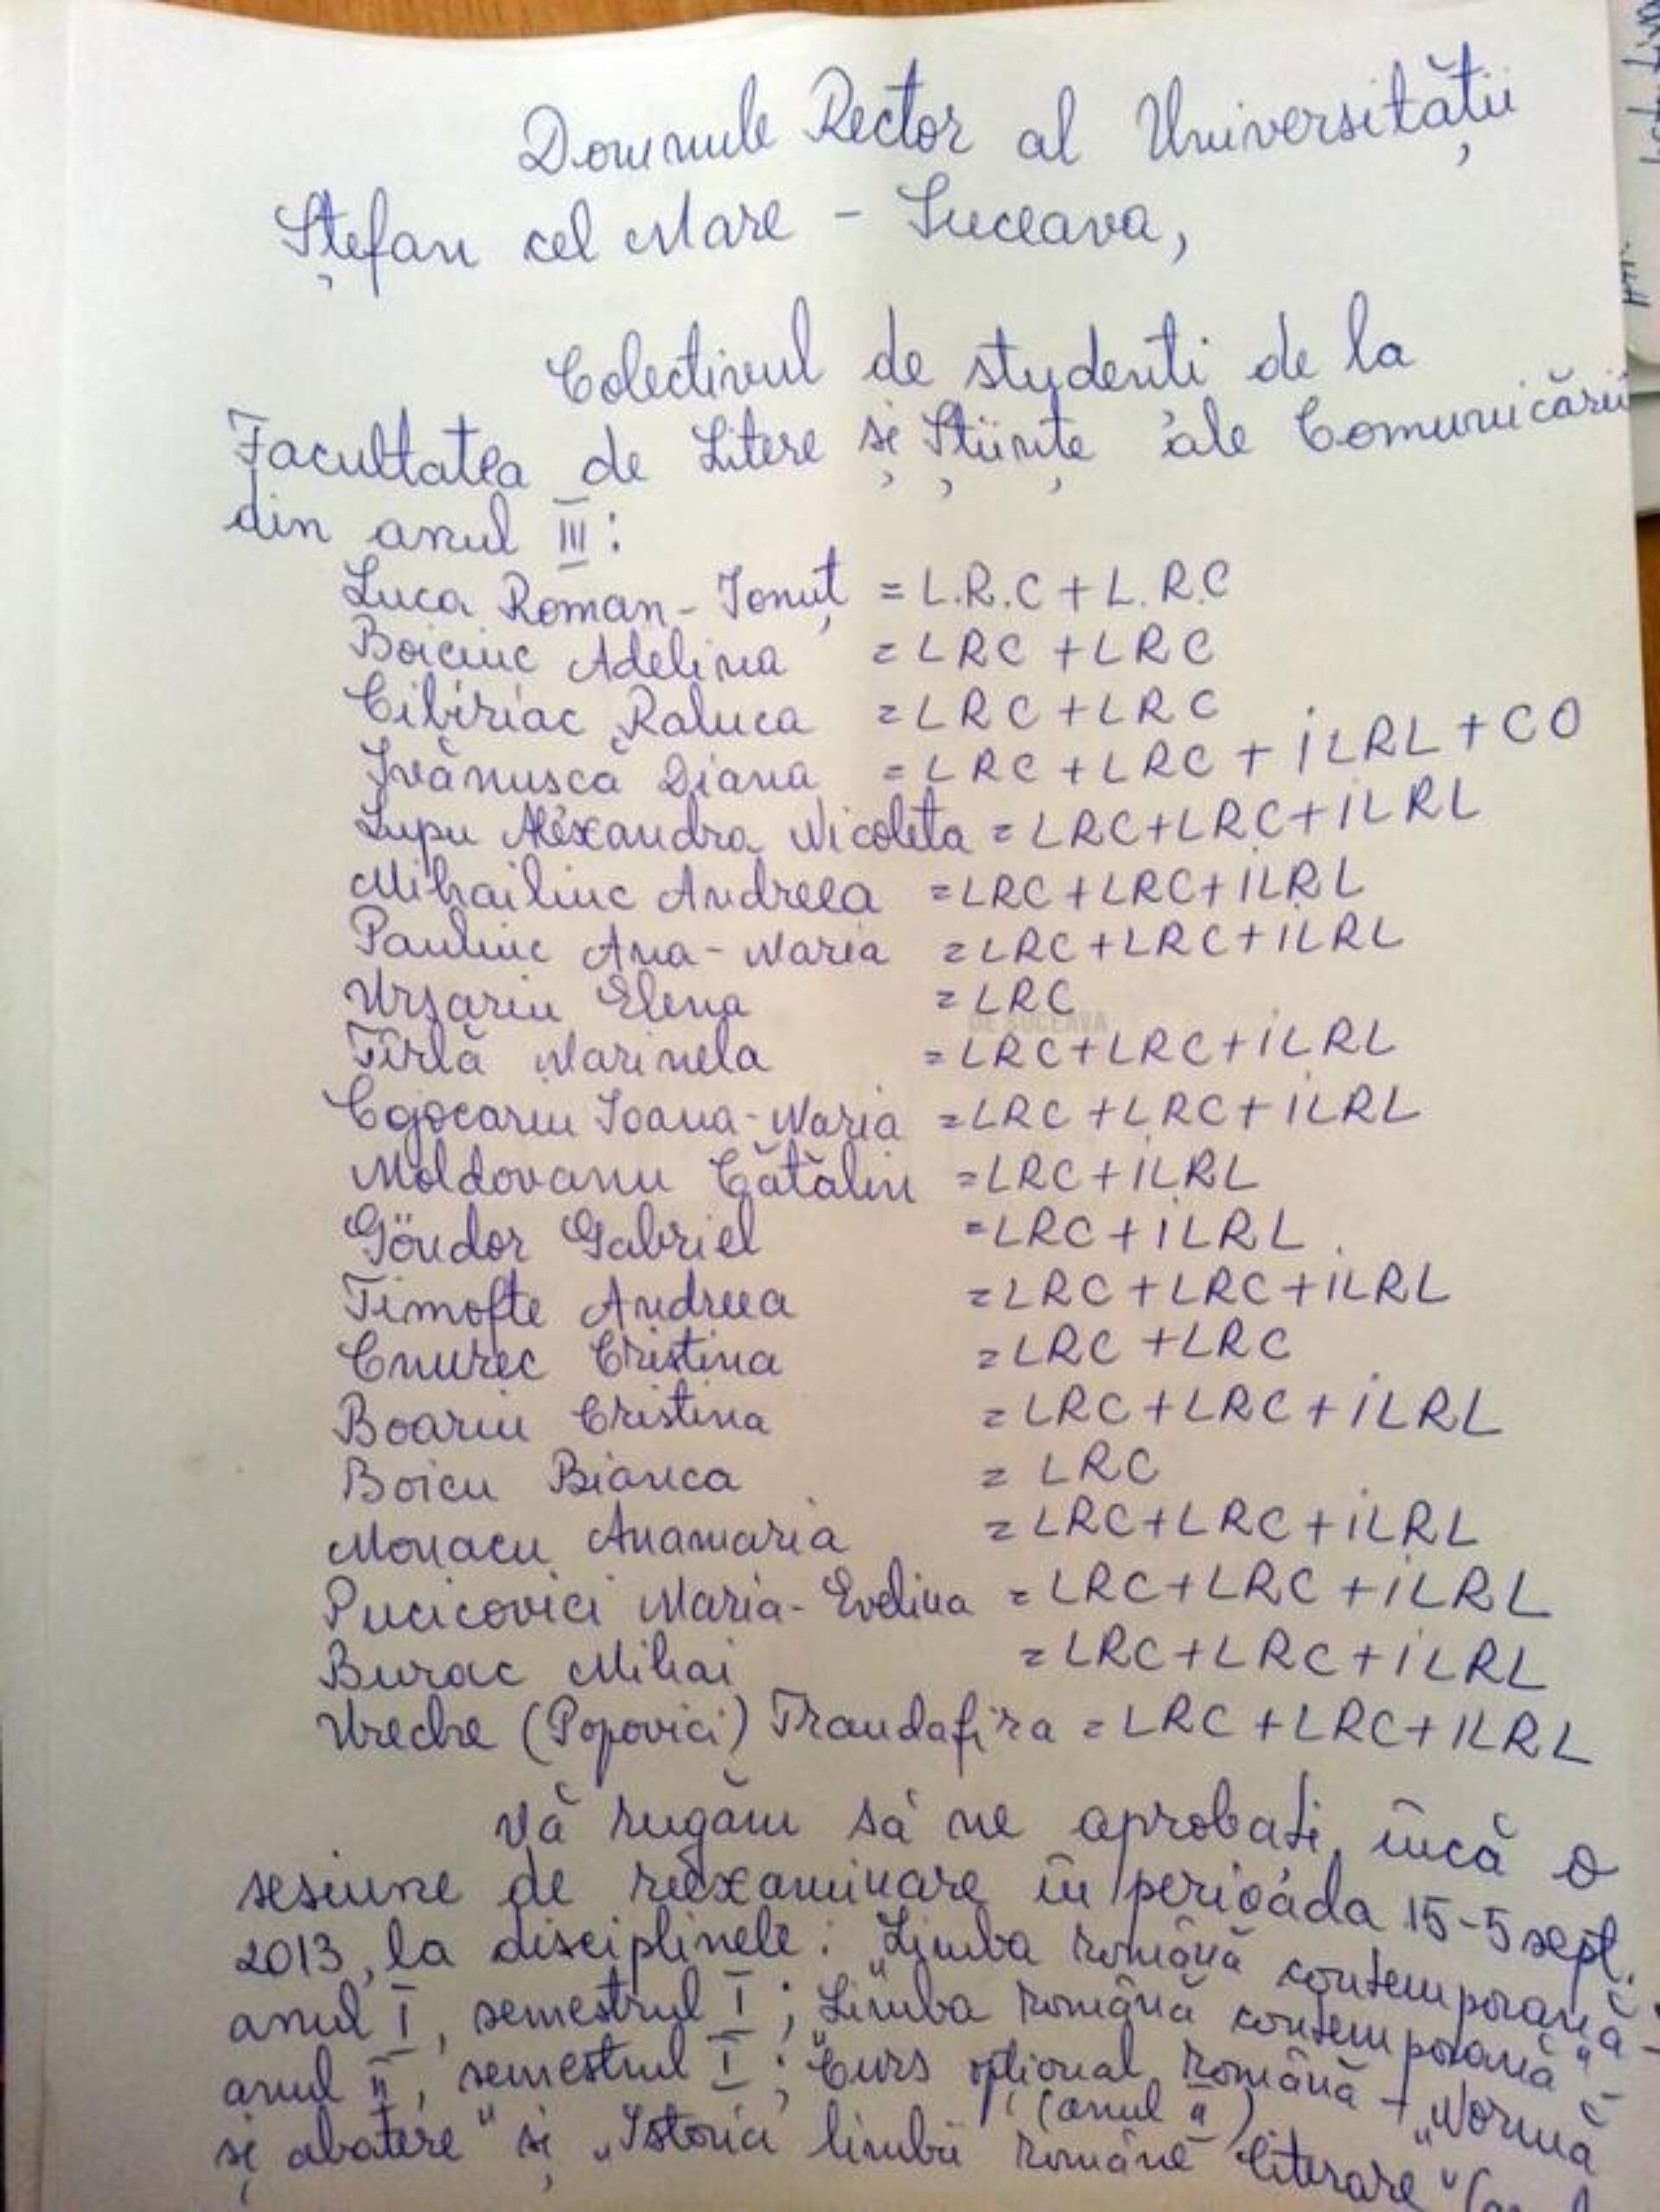 Domnule Rector al Universității
Ștefan cel Mare - Suceava,
Colectivul de studenti de la
Facultatea de Litere și Științe ale Comunicării
din anul III:
Luca Roman-Ionuț = L.R.C + L.R.C
Boiciuc Adelina = LRC + LRC
Cibiriac Raluca = LRC + LRC
Ivănuscă Diana = LRC + LRC + ILRL + CO
Lupu Alexandra Nicoleta = LRC+LRC+ILRL
Mihailiuc Andreea = LRC+LRC+ILRL
Pauliuc Ana-Maria = LRC+LRC+ILRL
Ursariu Elena = LRC
DE SUCEAVA
Tîrlă Marinela = LRC+LRC+ILRL
Cojocariu Ioana-Maria = LRC+LRC+ILRL
Moldovanu Cătălin = LRC+ILRL
Göndör Gabriel = LRC+ILRL
Timofte Andreea = LRC+LRC+ILRL
Cnurec Cristina = LRC+LRC
Boariu Cristina = LRC+LRC+ILRL
Boicu Bianca = LRC
Monacu Anamaria = LRC+LRC+ILRL
Pucicovici Maria-Evelina = LRC+LRC+ILRL
Burac Mihai = LRC+LRC+ILRL
Ureche (Popovici) Trandafira = LRC+LRC+ILRL
Vă rugăm să ne aprobați încă o
sesiune de reexaminare în perioada 15-5 sept.
2013, la disciplinele: „Limba română contemporană"-
anul I, semestrul I; „Limba română contemporană"-
anul II, semestrul I; Curs opțional română - „Normă
și abatere" (anul II) și „Istoria limbii române literare" (